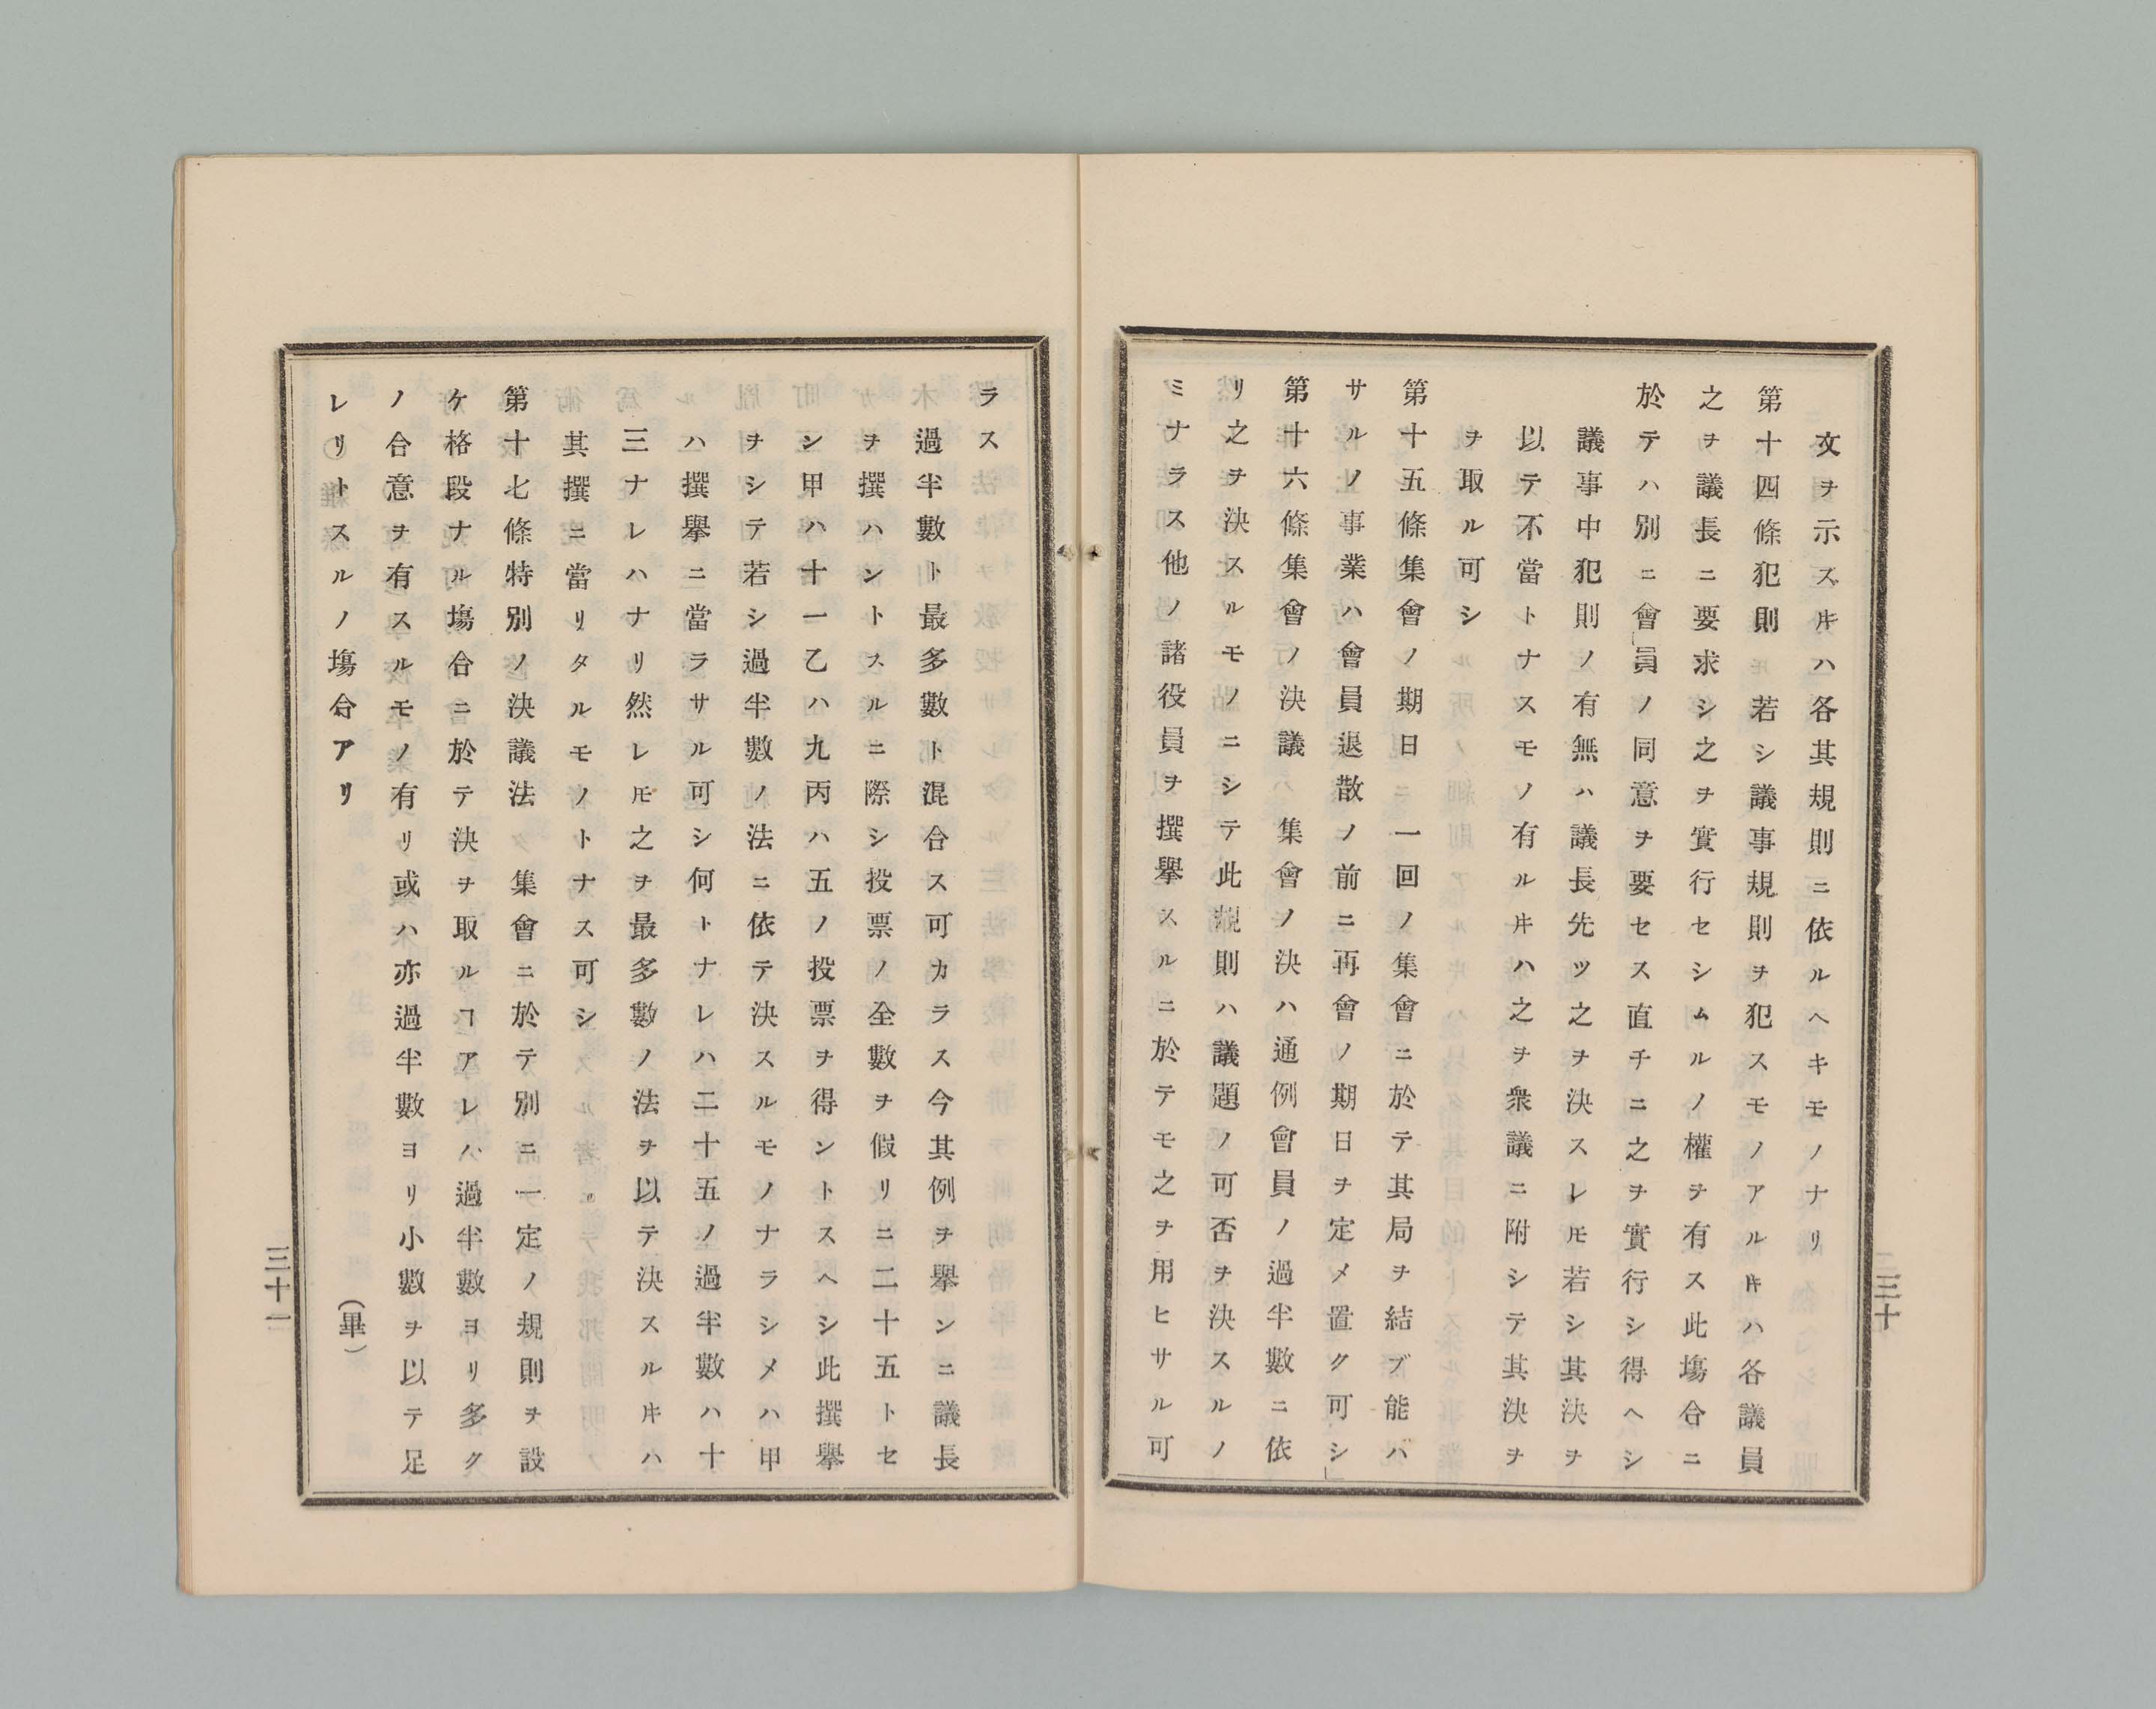 文ヲ示スヰハ各其規則ニ依ルヘキモノナリ
第十四條犯則　若シ議事規則ヲ犯スモノアルヰハ各議員
之ヲ議長ニ要求シ之ヲ實行セシムルノ權ヲ有ス此塲合ニ
於テハ別ニ會員ノ同意ヲ要セス直チニ之ヲ實行シ得ヘシ
議事中犯則ノ有無ハ議長先ツ之ヲ決スレ𪜈若シ其決ヲ
以テ不當トナスモノ有ルヰハ之ヲ衆議ニ附シテ其決ヲ
ヲ取ル可シ
第十五條集會ノ期日　一回ノ集會ニ於テ其局ヲ結ブ能ハ
サルノ事業ハ會員退散ノ前ニ再會ノ期日ヲ定メ置ク可シ
第十六條集會ノ決議　集會ノ決ハ通例會員ノ過半數ニ依
リ之ヲ決スルモノニシテ此規則ハ議題ノ可否ヲ決スルノ
ミナラス他ノ諸役員ヲ撰擧スルニ於テモ之ヲ用ヒサル可
三十
ラス
過半數ト最多數ト混合ス可カラス今其例ヲ擧ンニ議長
ヲ撰ハントスルニ際シ投票ノ全數ヲ假リニ二十五トセ
シ甲ハ十一乙ハ九丙ハ五ノ投票ヲ得ントスヘシ此撰擧
ヲシテ若シ過半數ノ法ニ依テ決スルモノナラシメハ甲
ハ撰擧ニ當ラサル可シ何トナレハ二十五ノ過半數ハ十
三ナレハナリ然レ𪜈之ヲ最多數ノ法ヲ以テ決スルヰハ
其撰ニ當リタルモノトナス可シ
第十七條特別ノ決議法　集會ニ於テ別ニ一定ノ規則ヲ設
ケ格段ナル塲合ニ於テ決ヲ取ルヿアレハ過半數ヨリ多ク
ノ合意ヲ有スルモノ有リ或ハ亦過半數ヨリ小數ヲ以テ足
レリトスルノ塲合アリ　（畢）
三十一